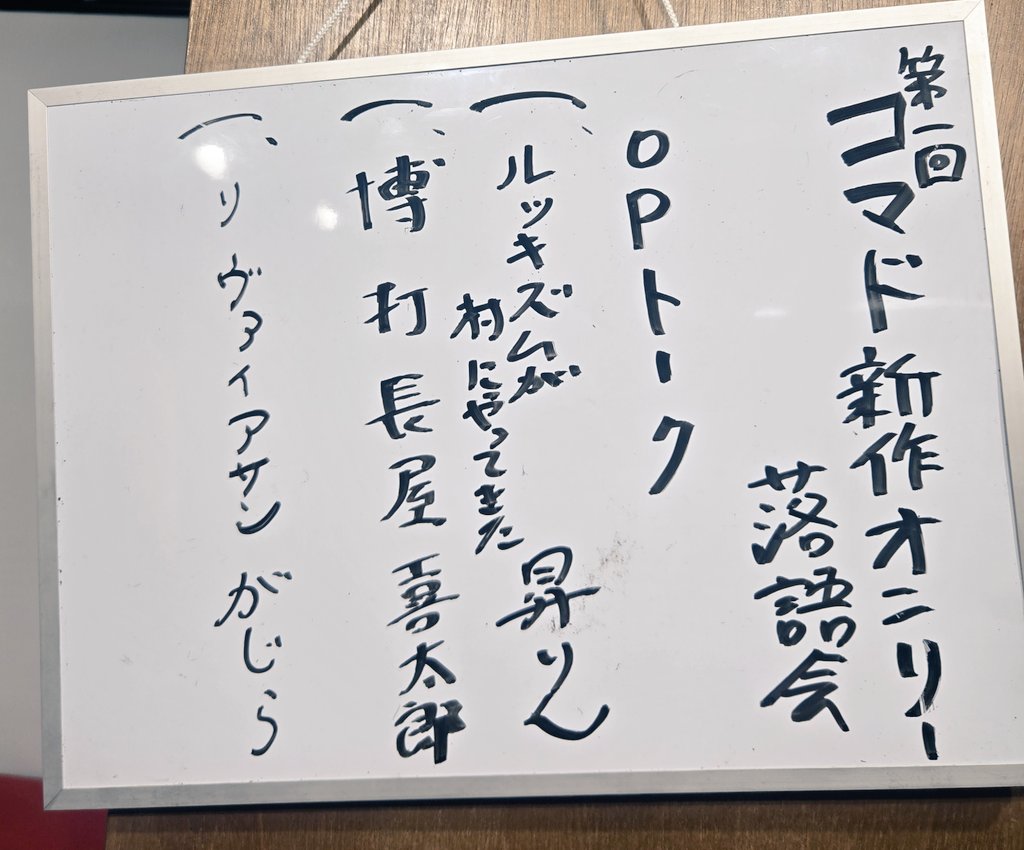 第一回
コマド新作オンリー
落語会
OPトーク
一、ルッキズムが
村にやってきた 昇りん
一、博打長屋 喜太郎
一、リヴァイアサン がじら